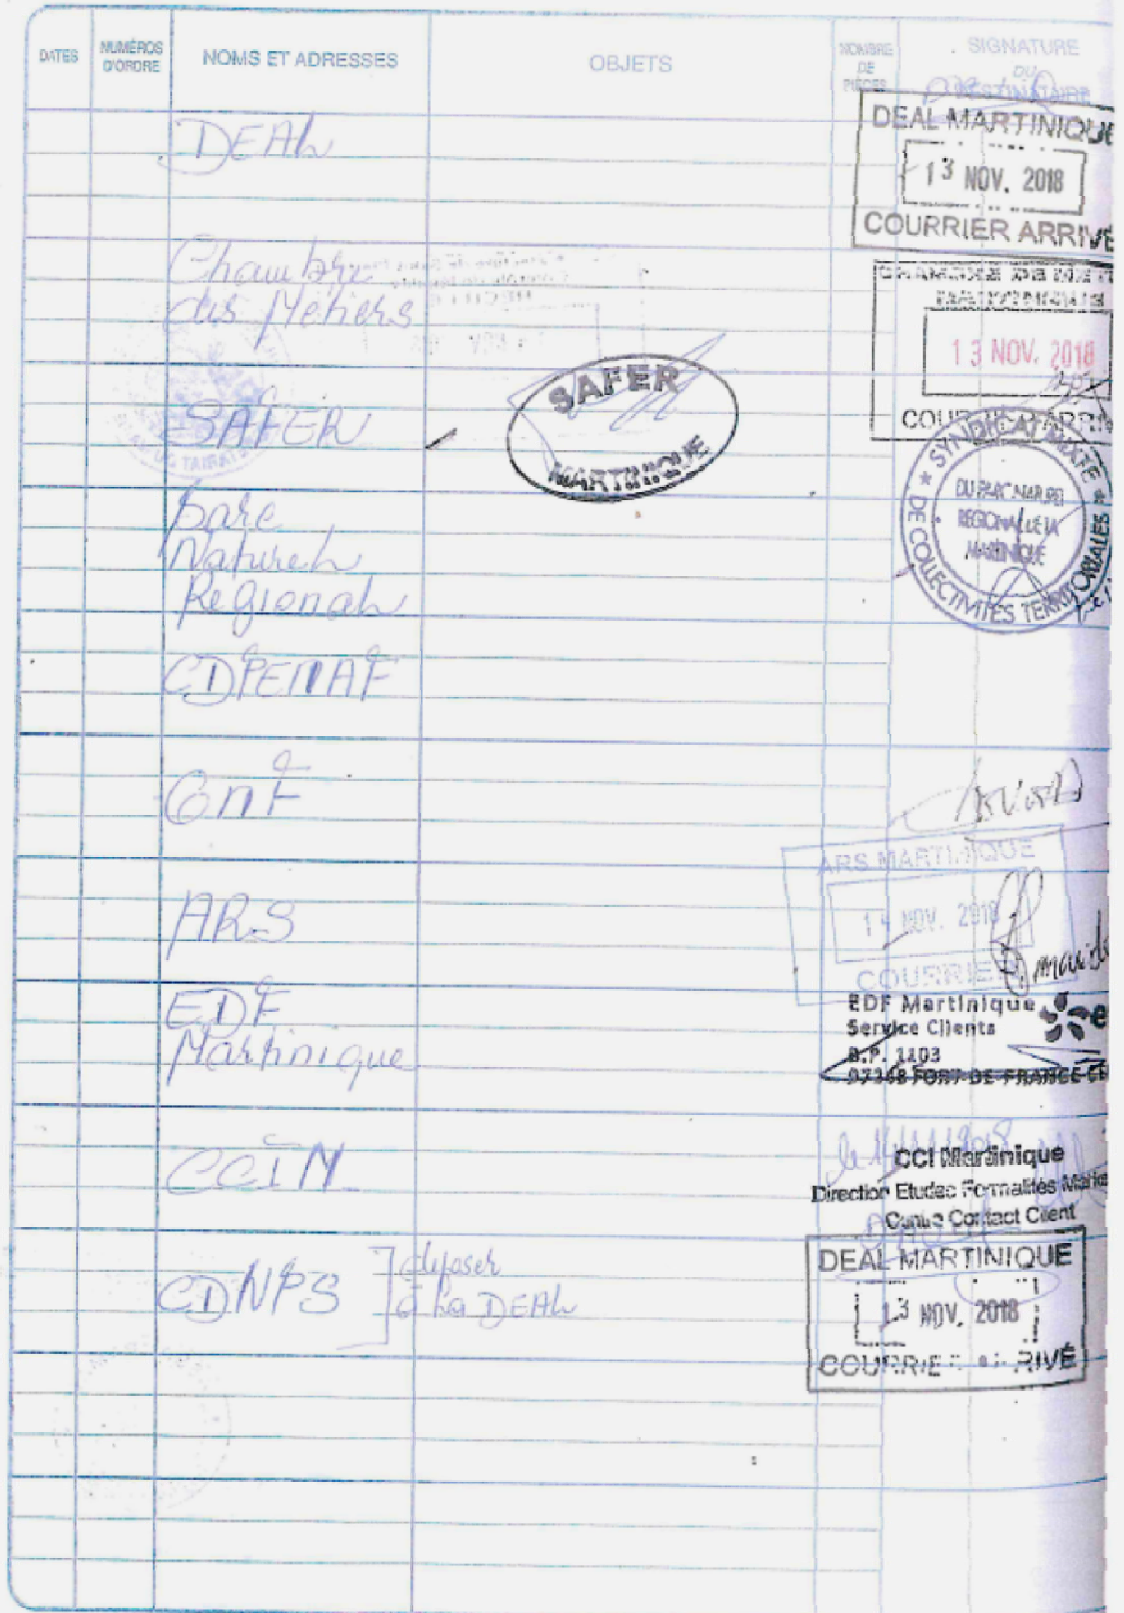 DATES
NUMÉROS
D'ORDRE
NOMS ET ADRESSES
OBJETS
NOMBRE
DE
PIÈCES
SIGNATURE
DU
DESTINATAIRE
DEAL
DEAL MARTINIQUE
13 NOV. 2018
COURRIER ARRIVÉ
Chambre
des Métiers
CHAMBRE DE
13 NOV. 2018
SAFER
SAFER
MARTINIQUE
parc
Naturel
Regional
SYNDICAT MIXTE
DE COLLECTIVITES TERRITORIALES
DU PARC NATUREL
REGIONAL DE LA
MARTINIQUE
CDPENAF
ONF
ARS
ARS MARTINIQUE
14 NOV. 2018
COURRIER
EDF
Martinique
EDF Martinique
Service Clients
B.P. 1103
FORT-DE-FRANCE
CCIM
le 14/11/2018
CCI Martinique
Direction Etudes Formalités
Contact Client
CDNPS
déposer
à la DEAL
DEAL MARTINIQUE
13 NOV. 2018
COURRIER ARRIVÉ